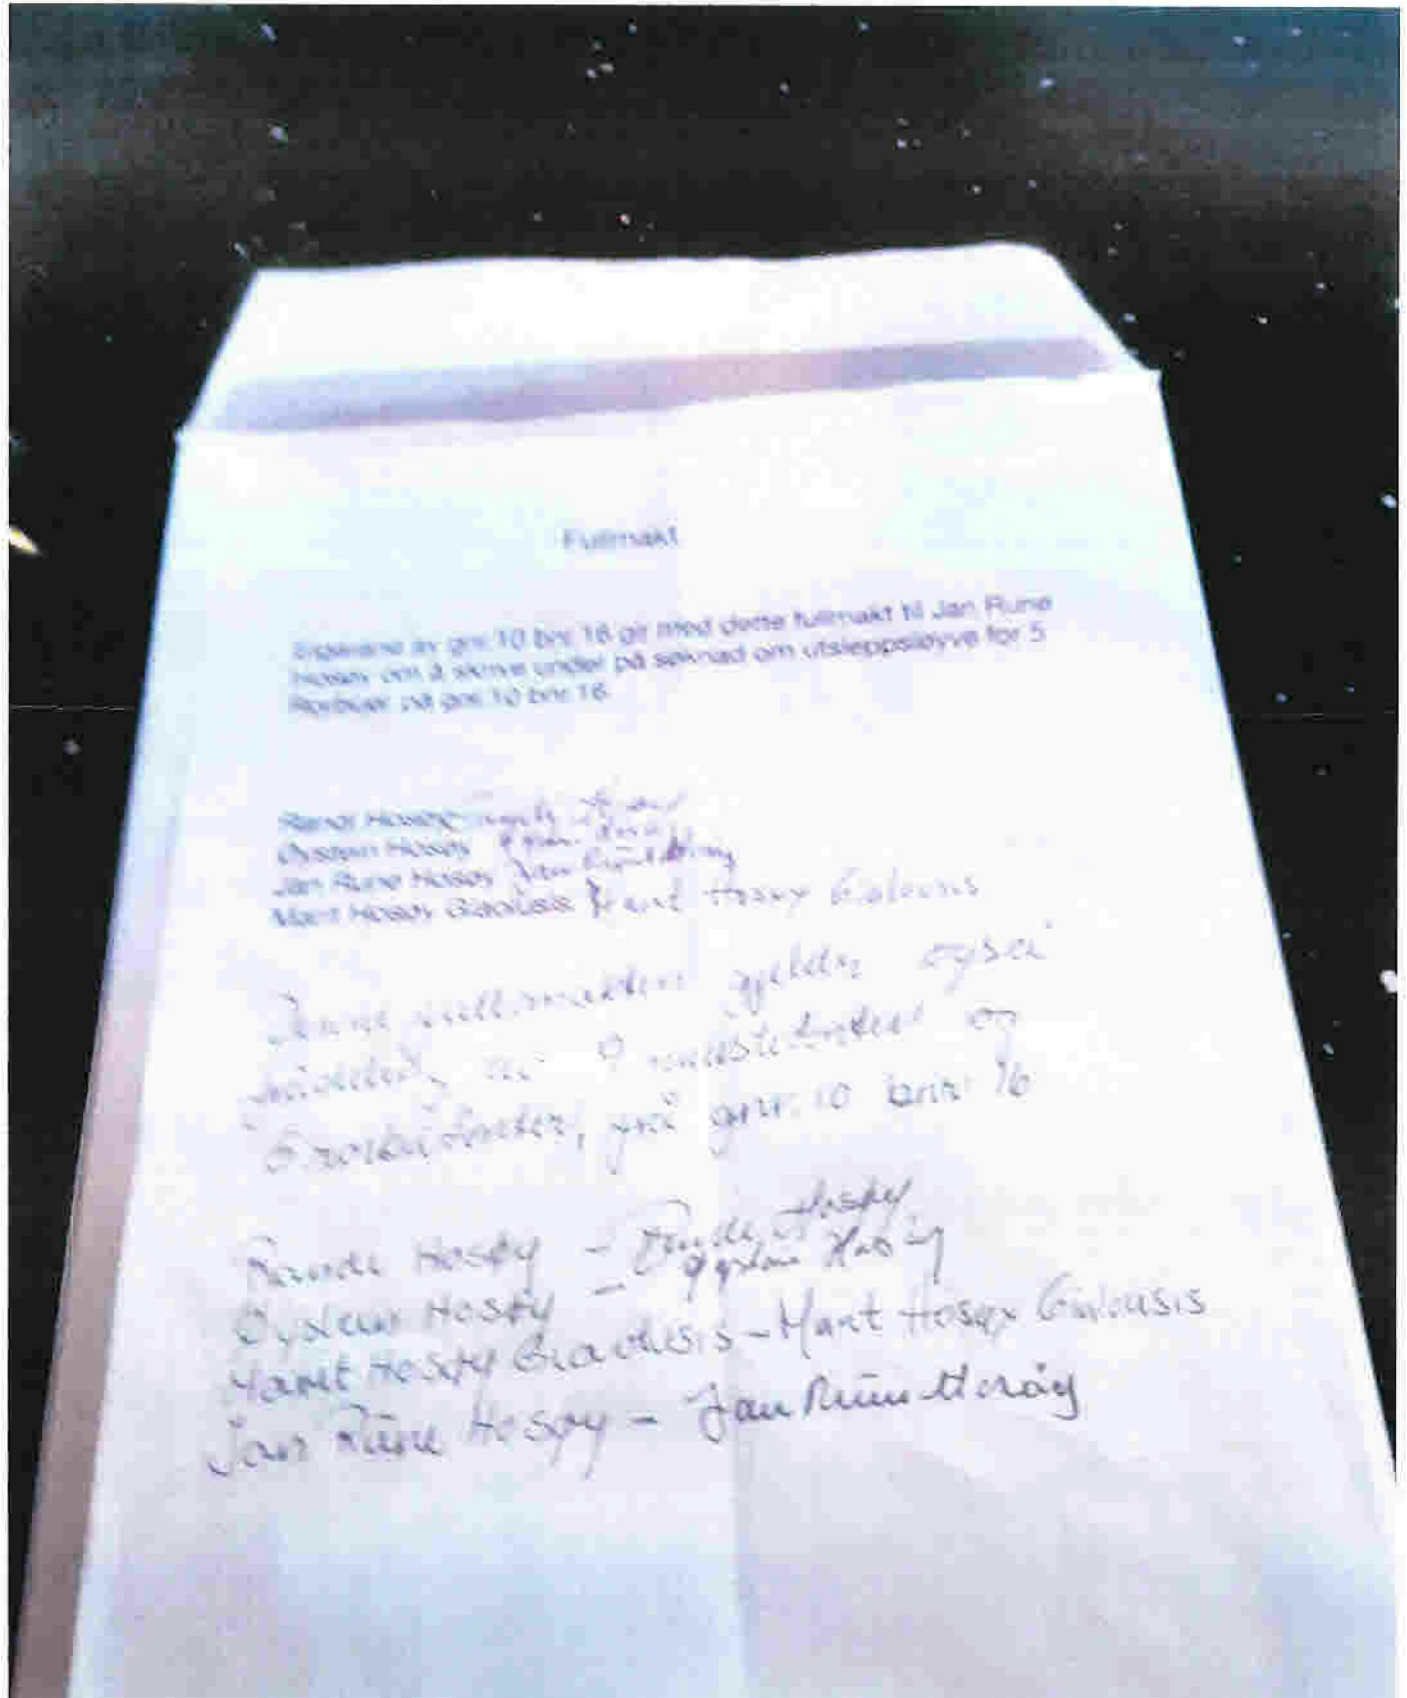 Fullmakt
Eigarane av gnr.10 bnr.16 gir med dette fullmakt til Jan Rune
Hosøy om å skrive under på søknad om utsleppsløyve for 5
Rorbuer på gnr.10 bnr.16
Randi Hosøy
Øystein Hosøy
Jan Rune Hosøy Jan Rune Hosøy
Marit Hosøy Gialousis Marit Hosøy Gialousis
Denne fullmakten gjelder også
på gnr. 10 bnr 16
Randi Hosøy - Randi Hosøy
Øystein Hosøy - Øystein Hosøy
Marit Hosøy Gialousis - Marit Hosøy Gialousis
Jan Rune Hosøy - Jan Rune Hosøy